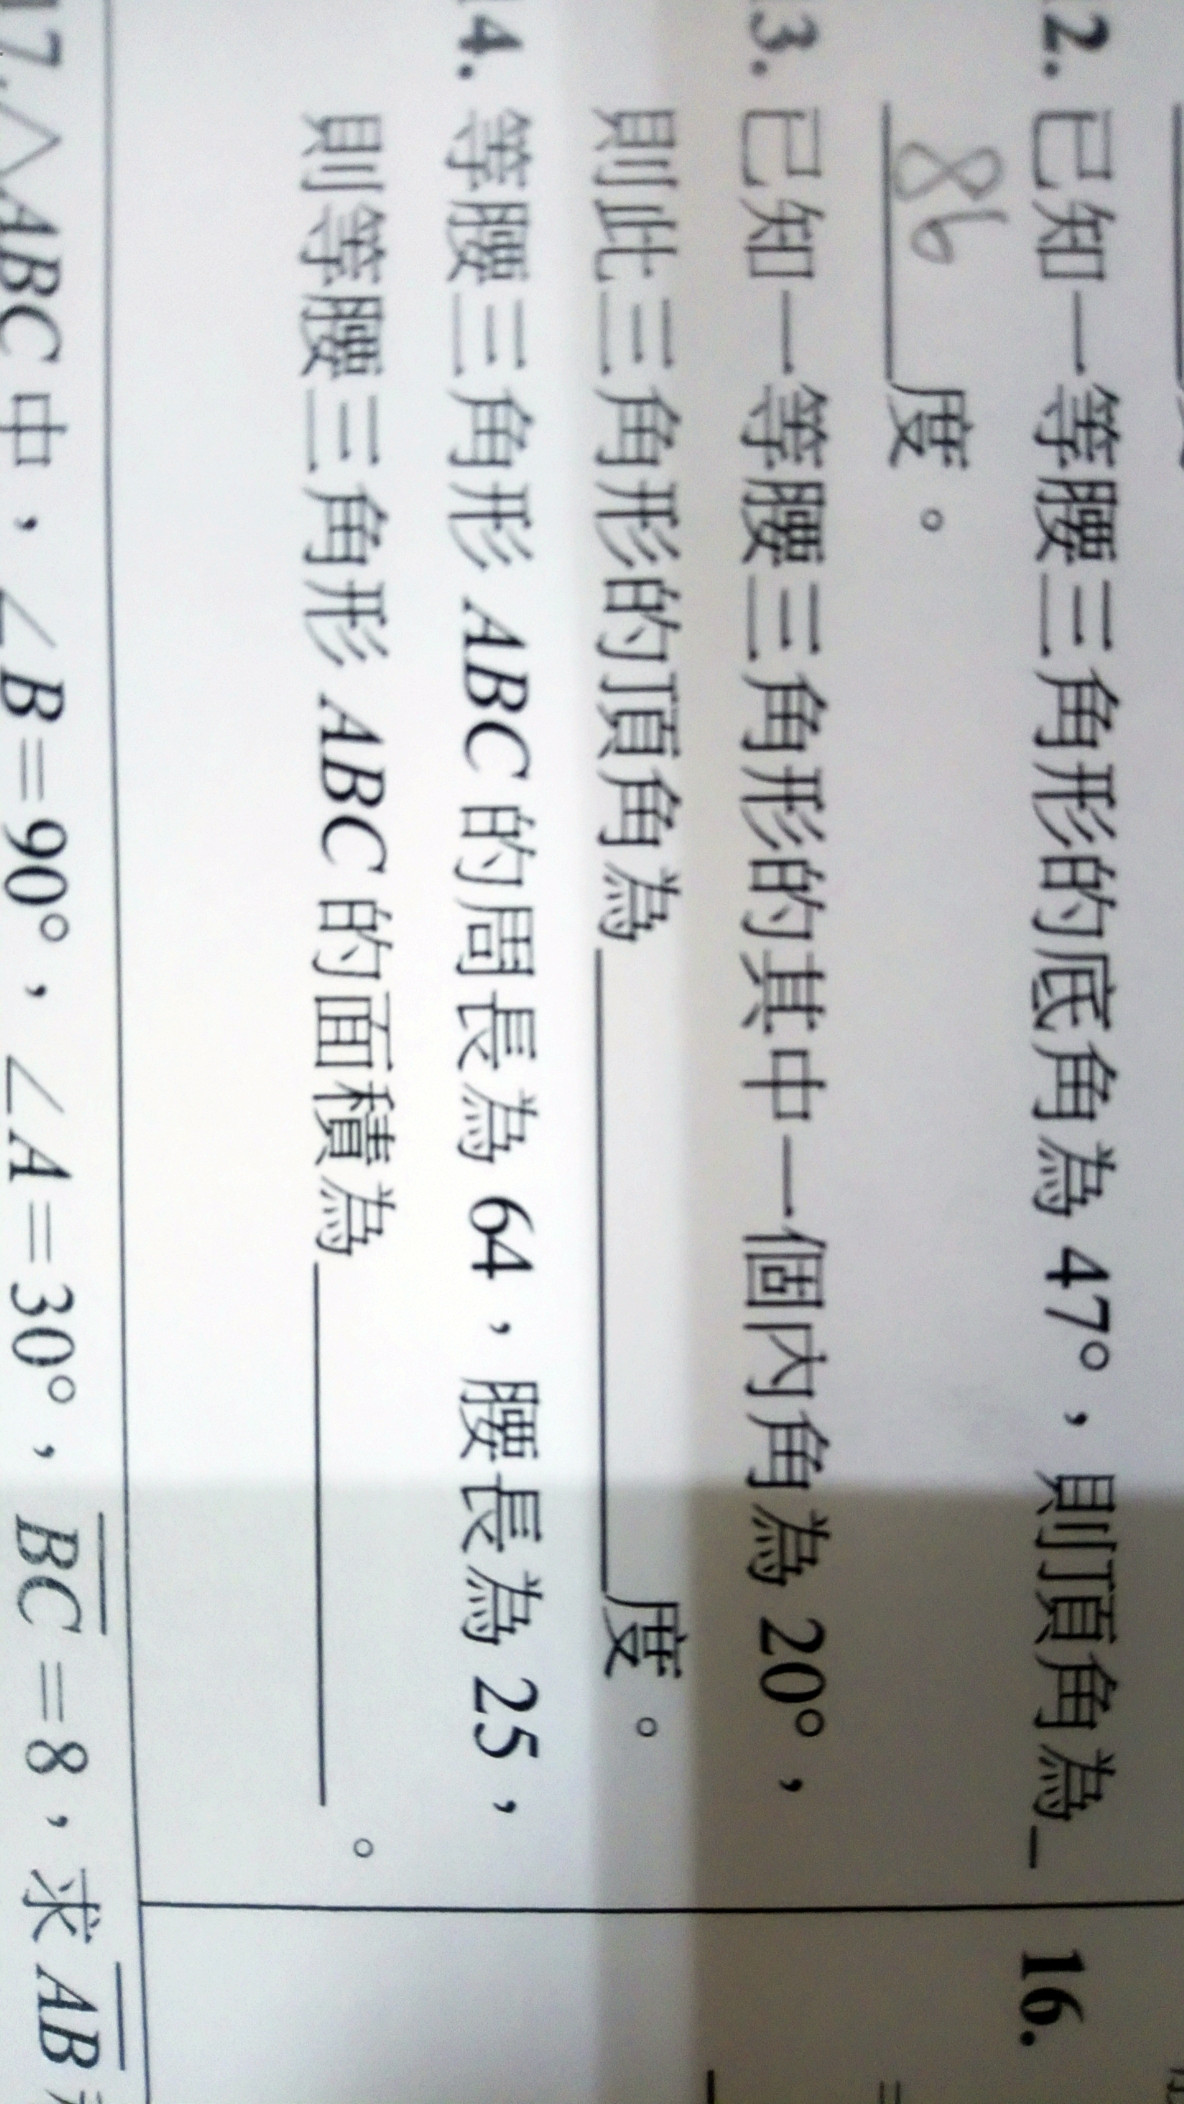 2. 已知一等腰三角形的底角為 47°，則頂角為_
86 度。
3. 已知一等腰三角形的其中一個內角為 20°，
則此三角形的頂角為____度。
4. 等腰三角形 ABC 的周長為 64，腰長為 25，
則等腰三角形 ABC 的面積為____。
17. △ABC 中，∠B=90°，∠A=30°，BC=8，求 AB
16.